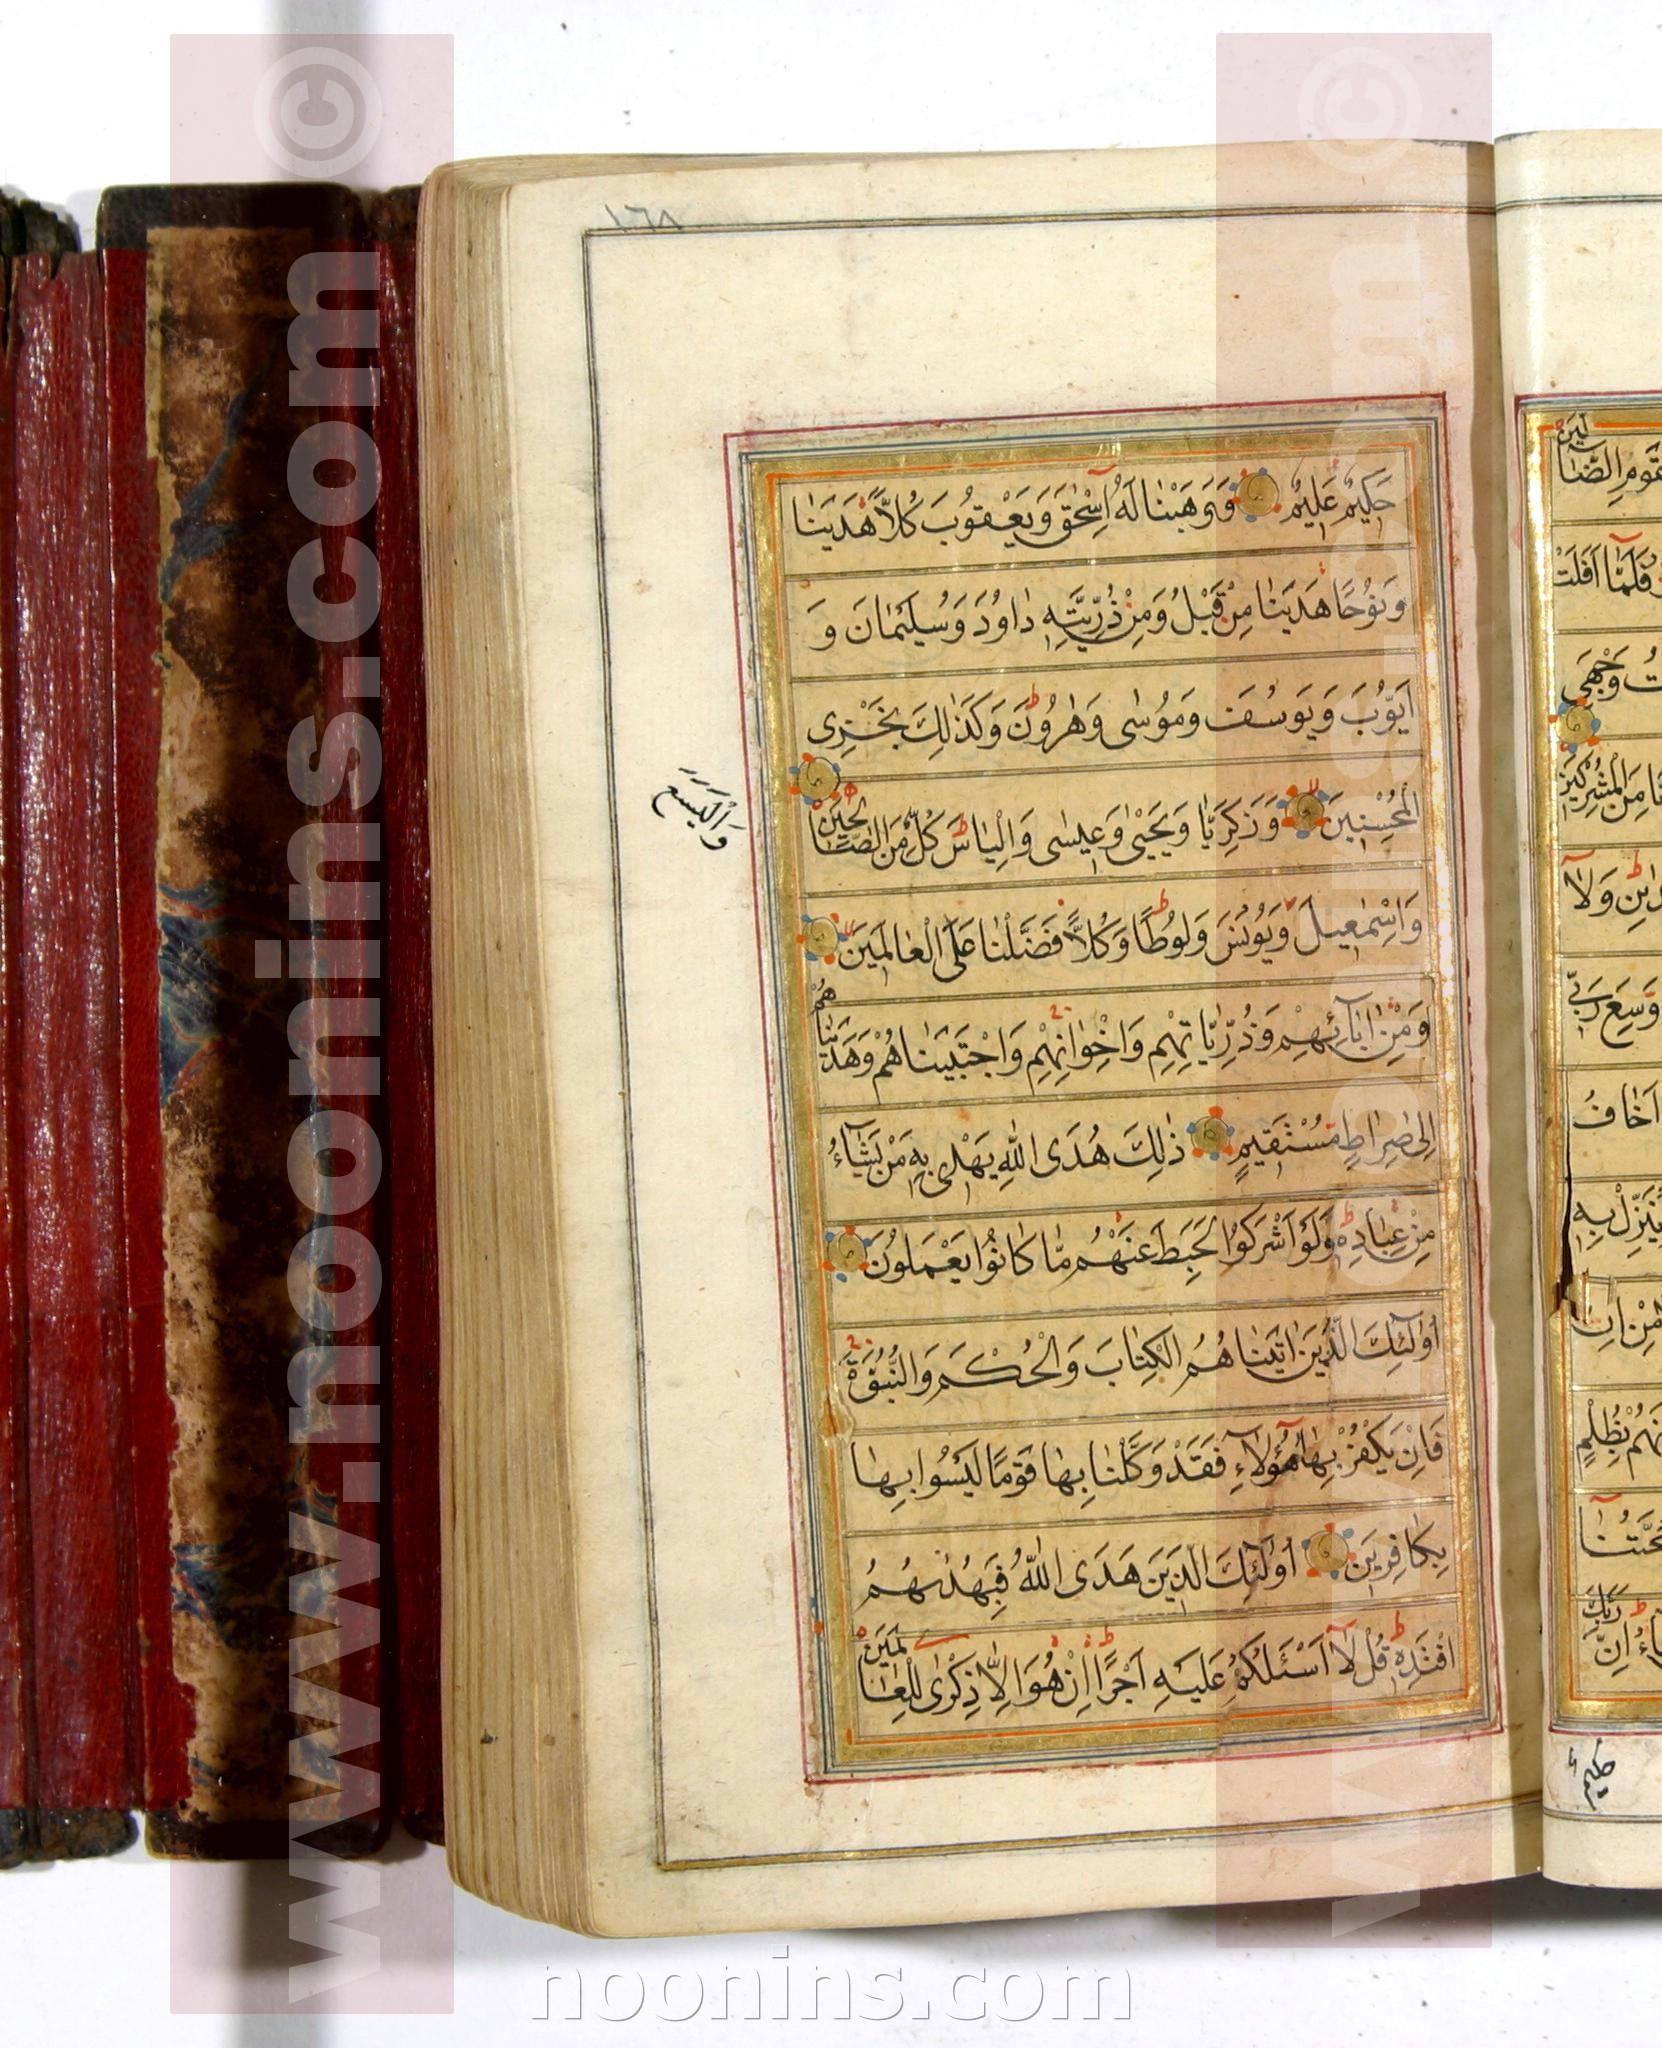 ١٦٨
حَكِيمٌ عَلِيمٌ وَوَهَبْنَا لَهُ اِسْحٰقَ وَيَعْقُوبَ كُلًّا هَدَيْنَا
وَنُوحًا هَدَيْنَا مِنْ قَبْلُ وَمِنْ ذُرِّيَّتِهِ دَاوُدَ وَسُلَيْمَانَ وَ
اَيُّوبَ وَيُوسُفَ وَمُوسٰى وَهٰرُونَ وَكَذٰلِكَ نَجْزِى
الْمُحْسِنِينَ وَزَكَرِيَّا وَيَحْيٰى وَعِيسٰى وَاِلْيَاسَ كُلٌّ مِنَ الصَّالِحِينَ
وَالْيَسَعَ
وَاِسْمٰعِيلَ وَيُونُسَ وَلُوطًا وَكُلًّا فَضَّلْنَا عَلَى الْعَالَمِينَ
وَمِنْ اٰبَائِهِمْ وَذُرِّيَّاتِهِمْ وَاِخْوَانِهِمْ وَاجْتَبَيْنَاهُمْ وَهَدَيْنَاهُمْ
اِلٰى صِرَاطٍ مُسْتَقِيمٍ ذٰلِكَ هُدَى اللّٰهِ يَهْدِى بِهِ مَنْ يَشَاءُ
مِنْ عِبَادِهِ وَلَوْ اَشْرَكُوا لَحَبِطَ عَنْهُمْ مَا كَانُوا يَعْمَلُونَ
اُولٰئِكَ الَّذِينَ اٰتَيْنَاهُمُ الْكِتَابَ وَالْحُكْمَ وَالنُّبُوَّةَ
فَاِنْ يَكْفُرْ بِهَا هٰؤُلَاءِ فَقَدْ وَكَّلْنَا بِهَا قَوْمًا لَيْسُوا بِهَا
بِكَافِرِينَ اُولٰئِكَ الَّذِينَ هَدَى اللّٰهُ فَبِهُدٰيهُمُ
اقْتَدِهْ قُلْ لَا اَسْئَلُكُمْ عَلَيْهِ اَجْرًا اِنْ هُوَ اِلَّا ذِكْرٰى لِلْعَالَمِينَ
قَوْمِ الضَّالِّينَ
فَلَمَّا اَفَلَتْ
وَجْهِىَ
مِنَ الْمُشْرِكِينَ
وَلَا
وَسِعَ رَبِّى
اَخَافُ
يُنَزِّلْ بِهِ
بِظُلْمٍ
حُجَّتُنَا
اِنَّ رَبَّكَ
حكيم
www.noonins.com ©
www.noonins.com ©
noonins.com